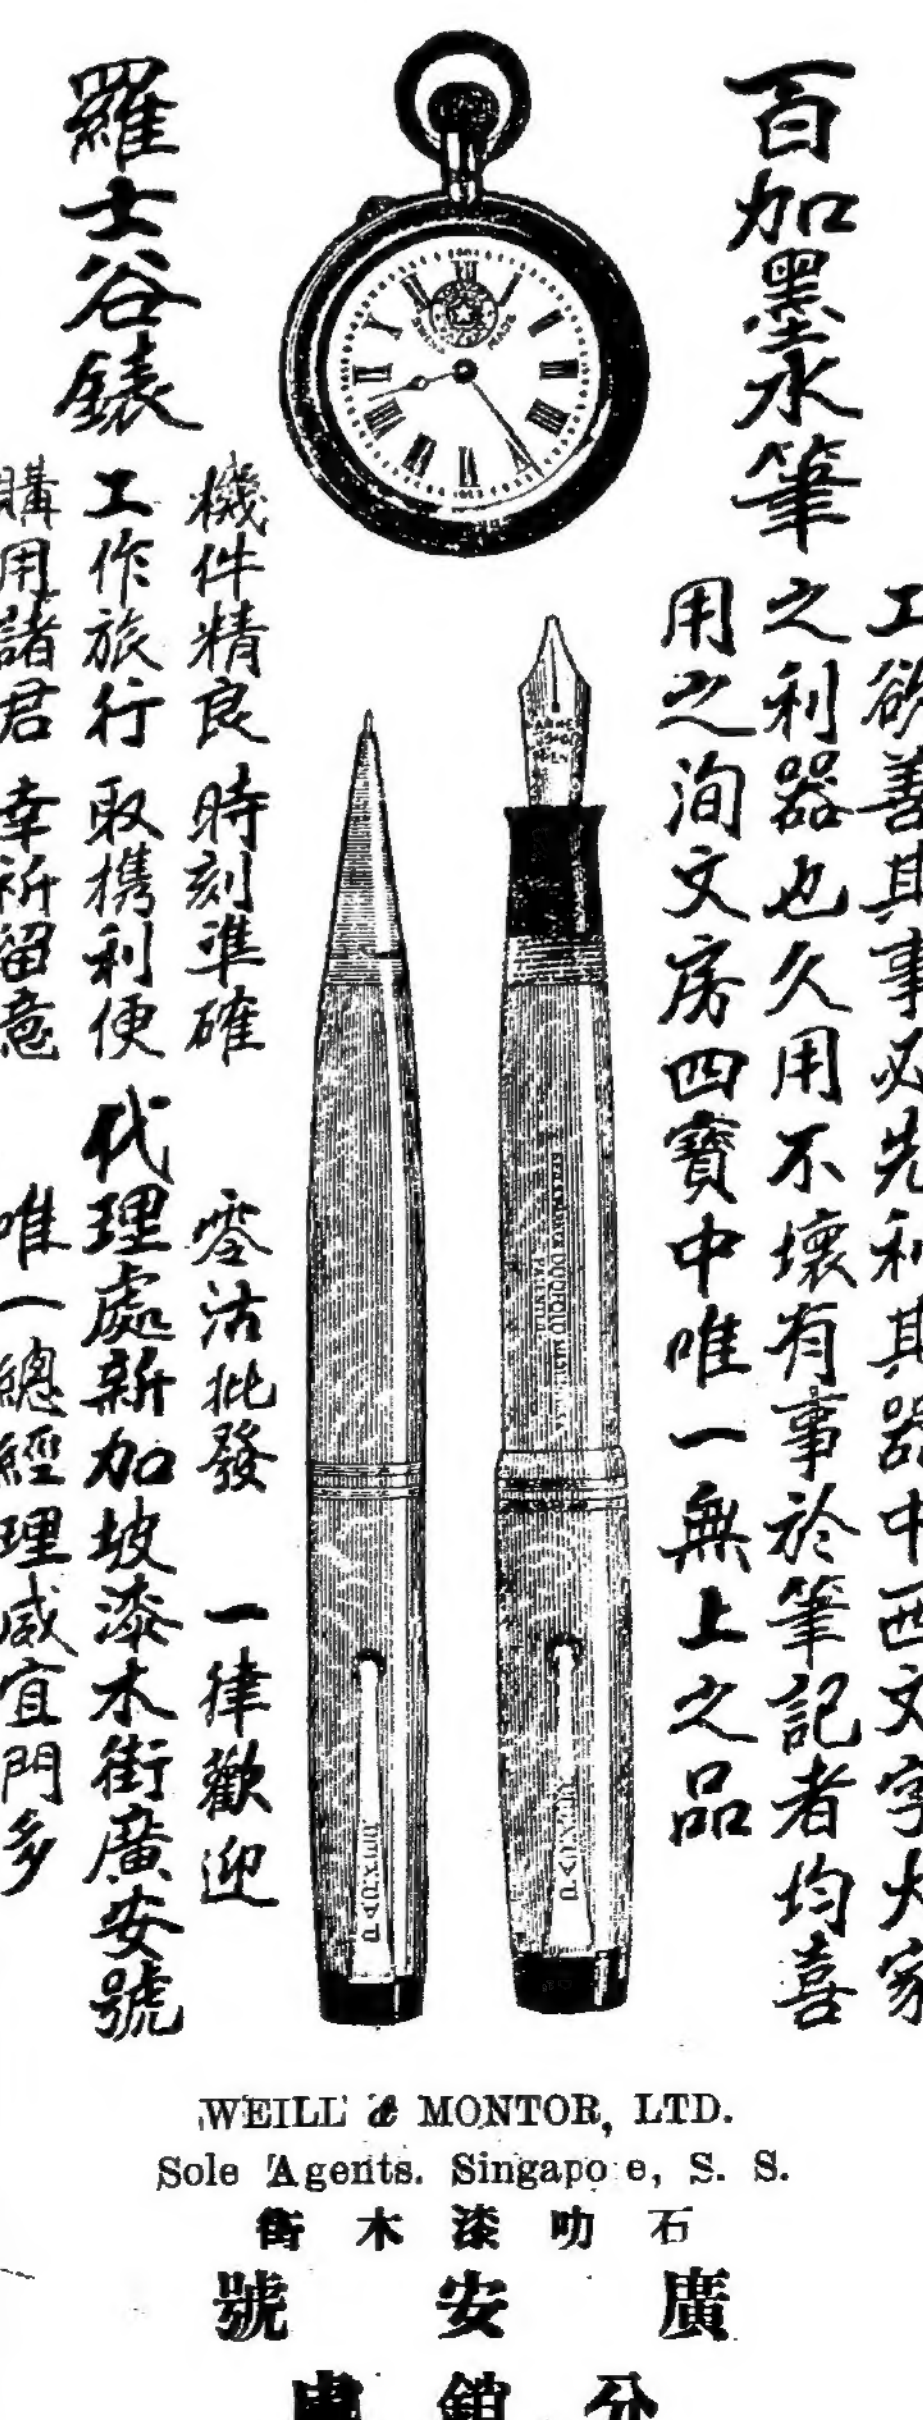 百加墨水筆
工欲善其事必先利其器中西文字大家
之利器也久用不壞有事於筆記者均喜
用之洵文房四寶中唯一無上之品
羅士谷錶
機件精良時刻準確
工作旅行取携利便
購用諸君幸祈留意
零沽批發 一律歡迎
代理處新加坡漆木街廣安號
唯一總經理威宜門多
SWISS MADE
DUOFOLD
WEILL & MONTOR, LTD.
Sole Agents. Singapo e, S. S.
石叻漆木街
廣安號
分銷處